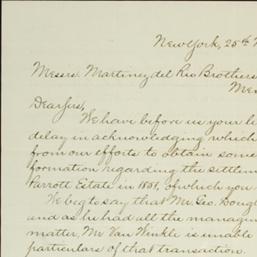 New York, 25th
Messrs. Martinez del Rio Brothers
Dear Sirs,
We have before us your le
delay in acknowledging which
from our efforts to obtain some
formation regarding the settlem
Parrott Estate in 1851, of which you
We beg to say that Mr. Geo. Doug
and as he had all the manag
matter, Mr. Van Winkle is unable
particulars of that transaction.